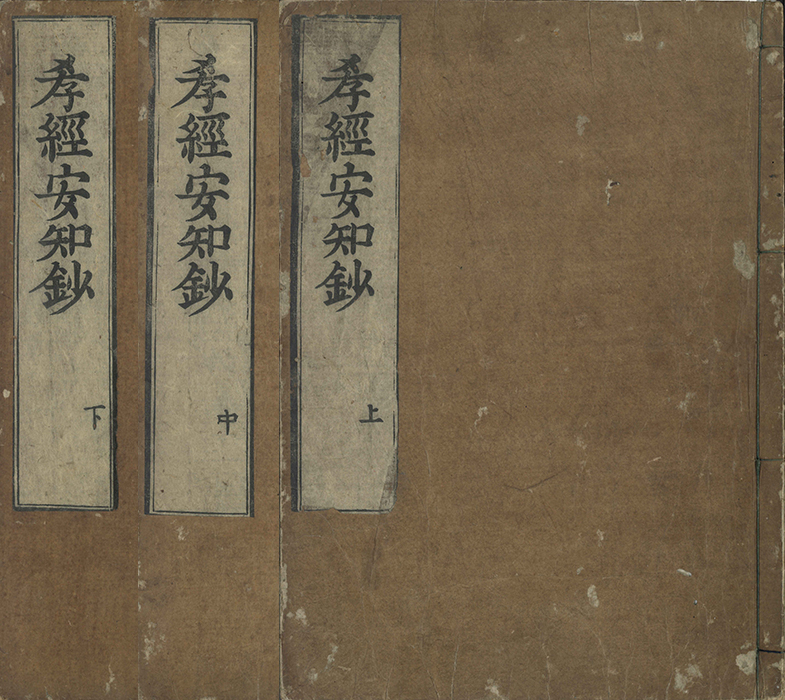 孝經安知鈔
上
孝經安知鈔
中
孝經安知鈔
下